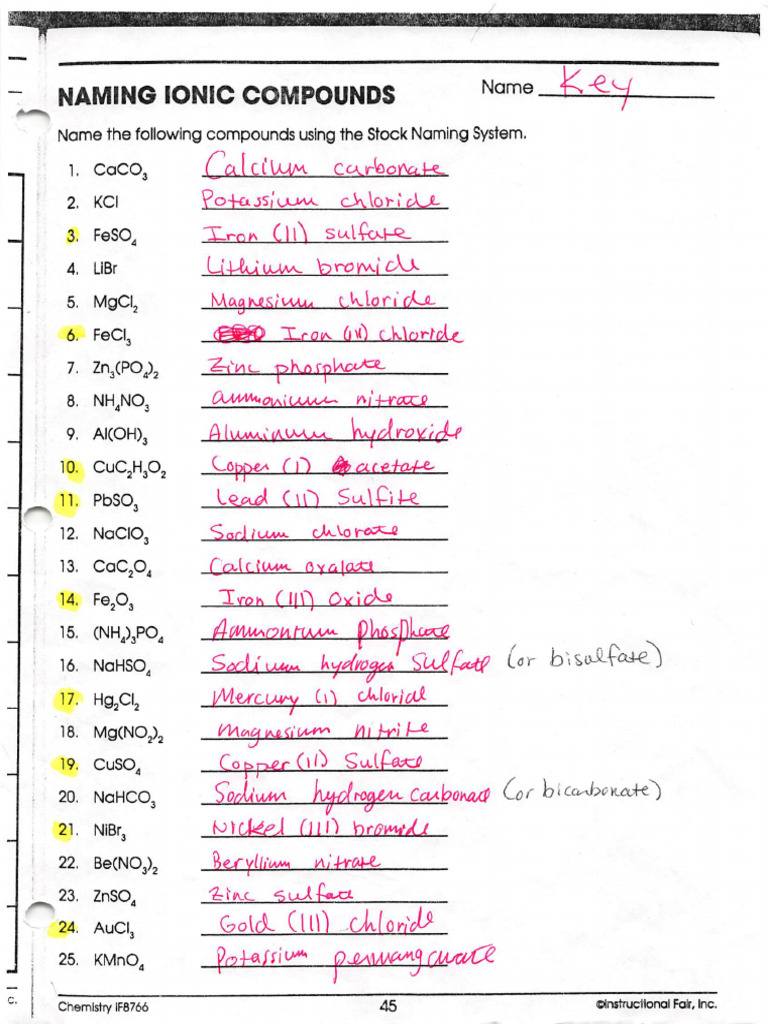 NAMING IONIC COMPOUNDS Name Key
Name the following compounds using the Stock Naming System.
1. CaCO₃ Calcium carbonate
2. KCl Potassium chloride
3. FeSO₄ Iron (II) sulfate
4. LiBr Lithium bromide
5. MgCl₂ Magnesium chloride
6. FeCl₃ Iron (III) chloride
7. Zn₃(PO₄)₂ Zinc phosphate
8. NH₄NO₃ ammonium nitrate
9. Al(OH)₃ Aluminum hydroxide
10. CuC₂H₃O₂ Copper (I) acetate
11. PbSO₃ Lead (II) Sulfite
12. NaClO₃ Sodium chlorate
13. CaC₂O₄ Calcium oxalate
14. Fe₂O₃ Iron (III) Oxide
15. (NH₄)₃PO₄ Ammonium phosphate
16. NaHSO₄ Sodium hydrogen Sulfate (or bisulfate)
17. Hg₂Cl₂ Mercury (I) chloride
18. Mg(NO₂)₂ Magnesium nitrite
19. CuSO₄ Copper (II) Sulfate
20. NaHCO₃ Sodium hydrogen carbonate (or bicarbonate)
21. NiBr₃ Nickel (III) bromide
22. Be(NO₃)₂ Beryllium nitrate
23. ZnSO₄ Zinc sulfate
24. AuCl₃ Gold (III) chloride
25. KMnO₄ Potassium permanganate
c.
Chemistry IF8766 45 ©Instructional Fair, Inc.